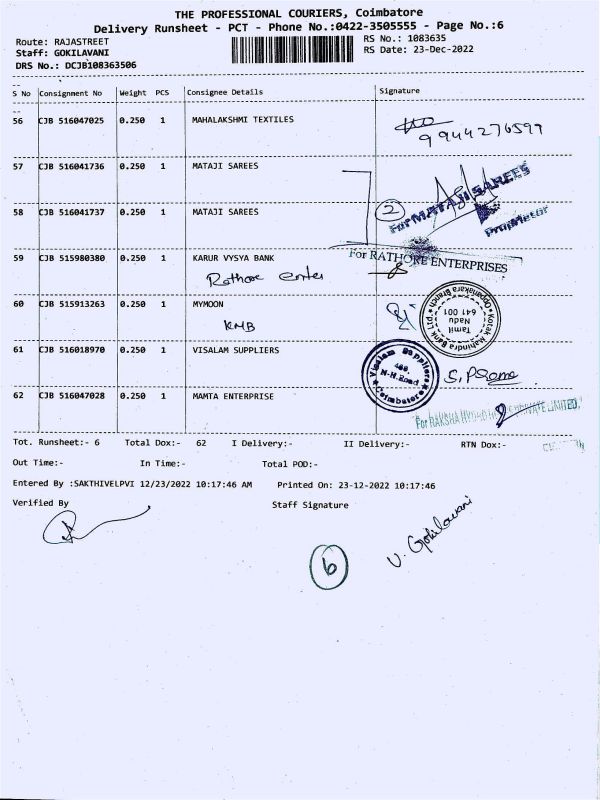 THE PROFESSIONAL COURIERS, Coimbatore
Delivery Runsheet - PCT - Phone No.:0422-3505555 - Page No.:6
Route: RAJASTREET
RS No.: 1083635
Staff: GOKILAVANI
RS Date: 23-Dec-2022
DRS No.: DCJB108363506
S No Consignment No Weight PCS Consignee Details Signature
56 CJB 516047025 0.250 1 MAHALAKSHMI TEXTILES
9944276599
57 CJB 516041736 0.250 1 MATAJI SAREES
For MATAJI SAREES
58 CJB 516041737 0.250 1 MATAJI SAREES 2
Proprietor
59 CJB 515980380 0.250 1 KARUR VYSYA BANK For RATHORE ENTERPRISES
Rathore enter
60 CJB 515913263 0.250 1 MYMOON
KMB
Kotak Mahindra Bank Ltd. Oppanakara Branch
Tamil Nadu 641 001
61 CJB 516018970 0.250 1 VISALAM SUPPLIERS
Visalam Suppliers
N.H.Road
Coimbatore
62 CJB 516047028 0.250 1 MAMTA ENTERPRISE
For RAKSHA PRIVATE LIMITED.
Tot. Runsheet:- 6 Total Dox:- 62 I Delivery:- II Delivery:- RTN Dox:-
Out Time:- In Time:- Total POD:-
Entered By :SAKTHIVELPVI 12/23/2022 10:17:46 AM Printed On: 23-12-2022 10:17:46
Verified By Staff Signature
V. Gokilavani
6